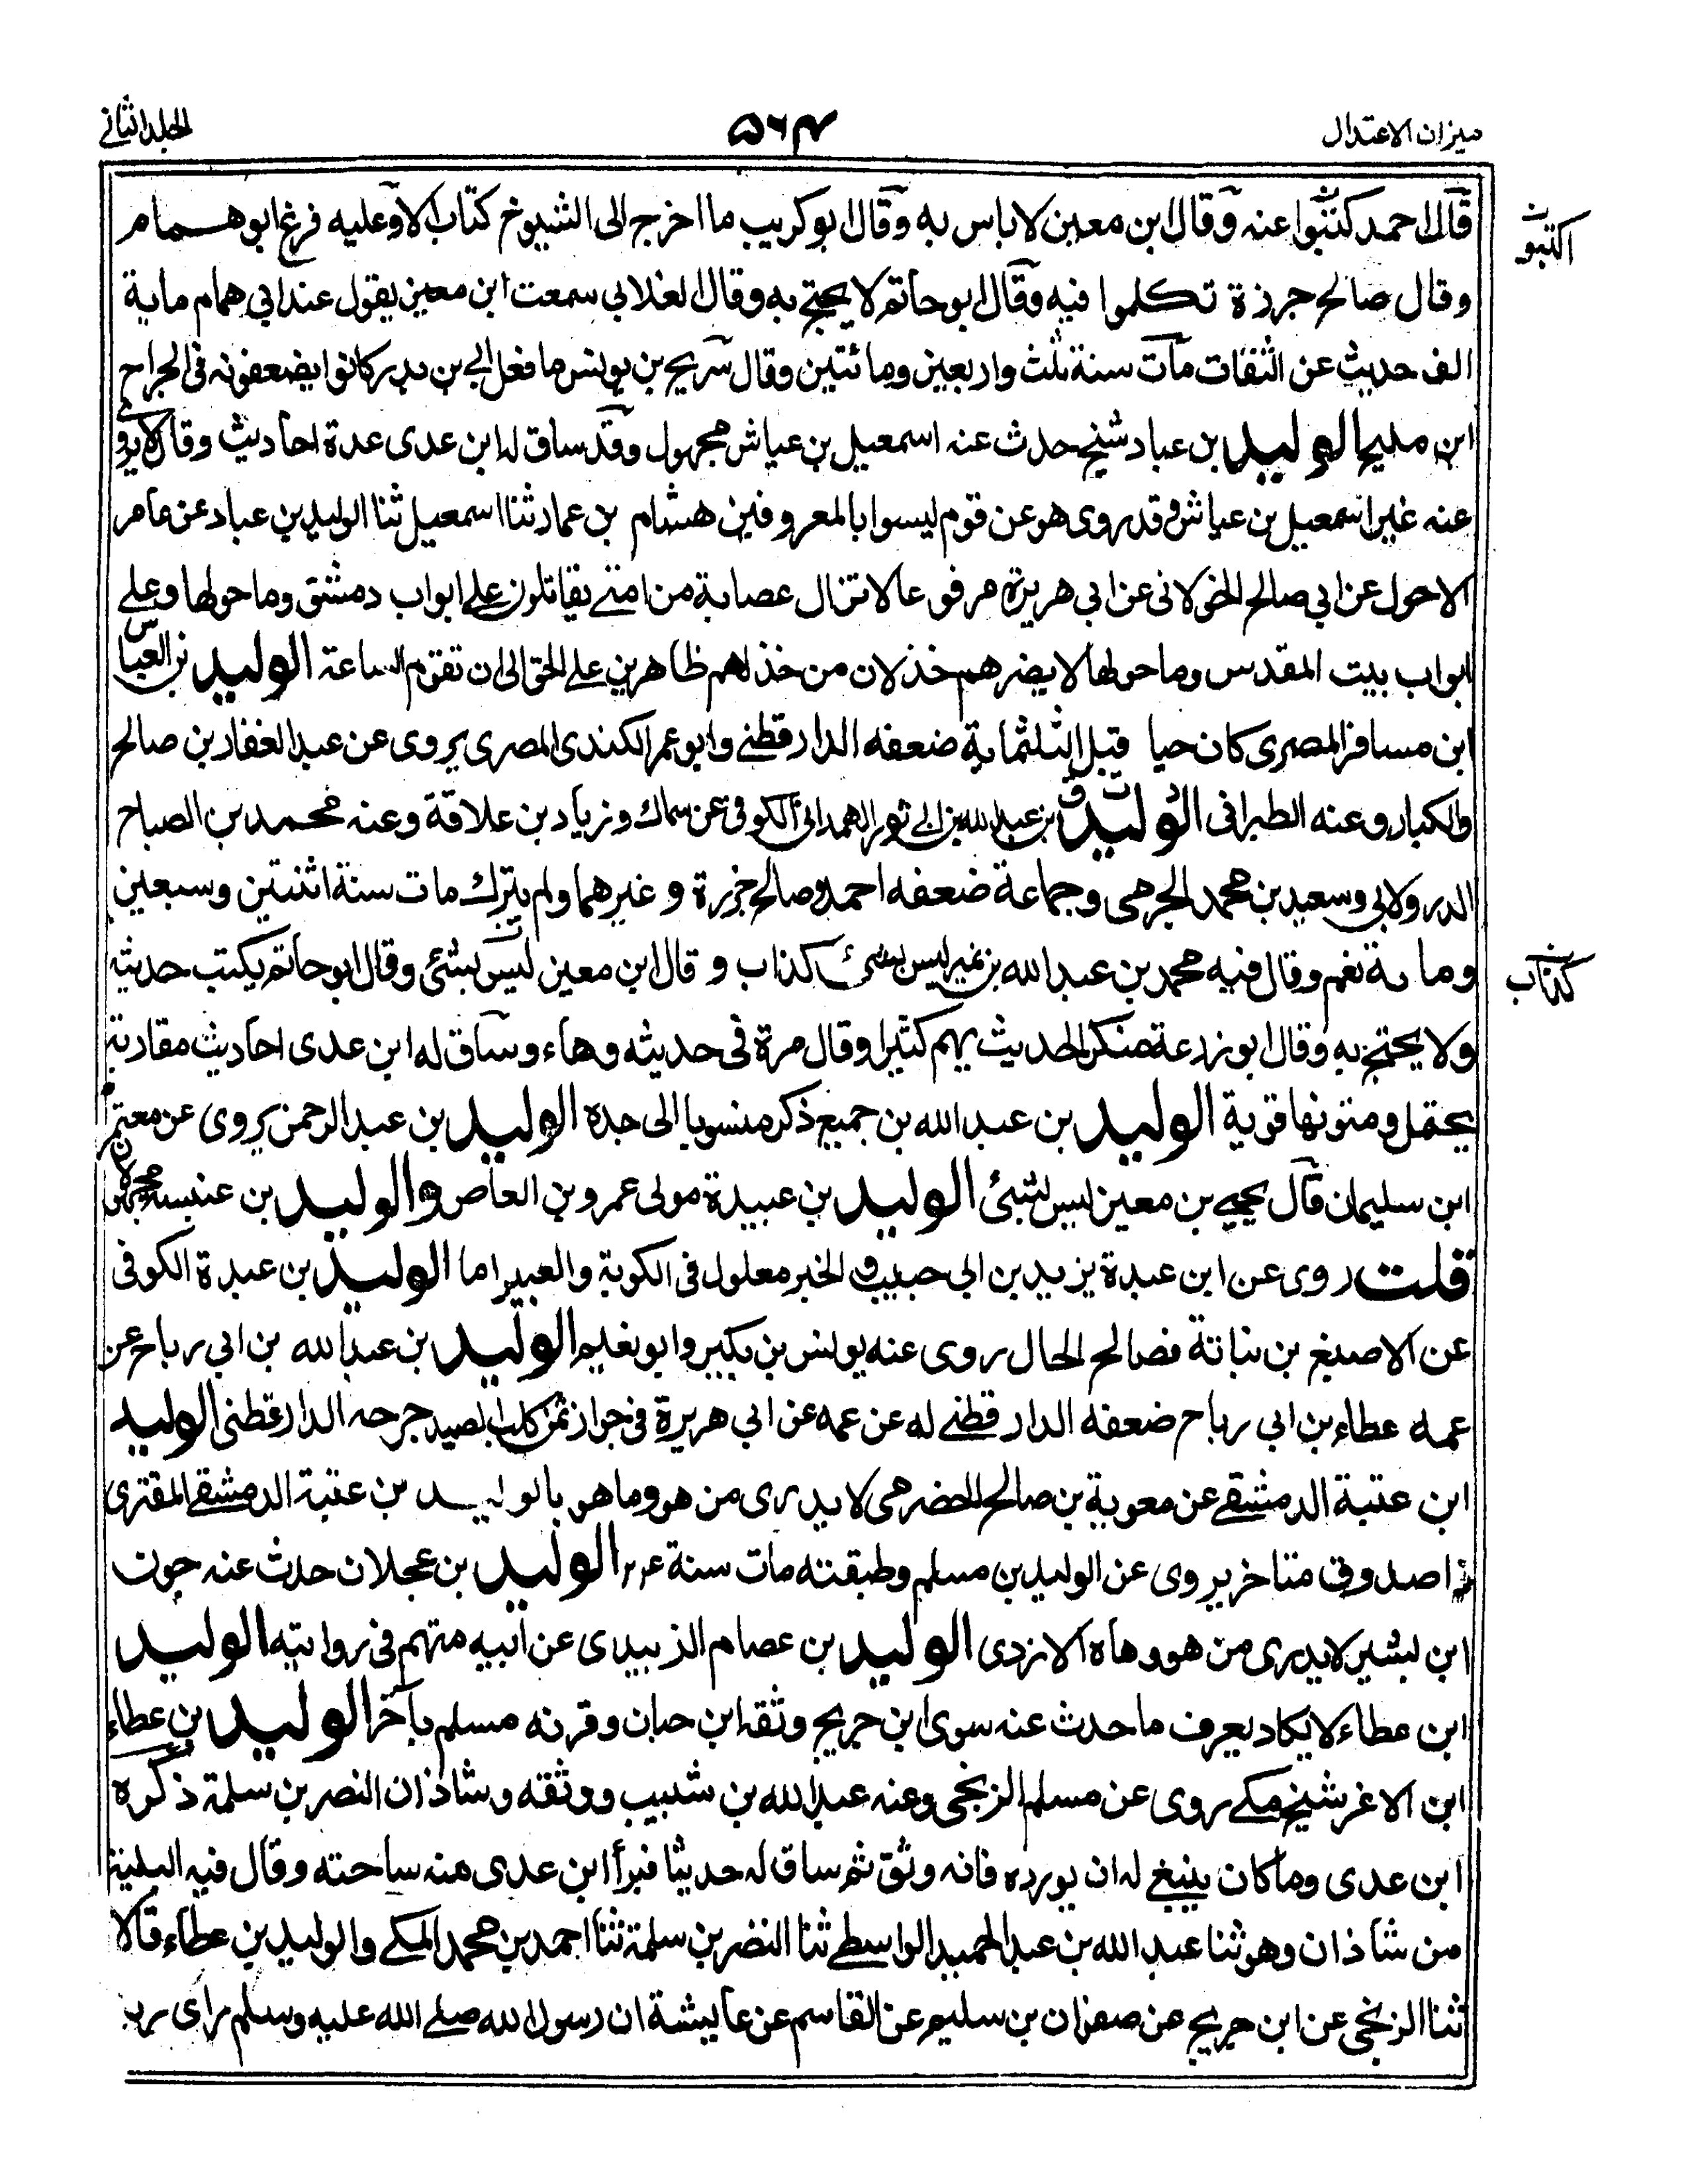 ميزان الاعتدال
۵۶۴
الجلد الثانے
قال احمد كتبوا عنه وقال ابن معين لا باس به وقال ابو كريب ما اخرج الى الشيوخ كتاب الا وعليه فرغ ابو همام
اكتبوا
وقال صالح جرزة تكلموا فيه وقال ابو حاتم لا يحتج به وقال الغلابي سمعت ابن معين يقول عند ابي همام ماية
الف حديث عن الثقات مات سنة ثلث واربعين ومائتين وقال سريج بن يونس ما فعل ابن بدر كانوا يضعفونه فى الجراح
ابن مليح الوليد بن عباد شيخ حدث عنه اسمعيل بن عياش مجهول وقد ساق له ابن عدى عدة احاديث وقال لا يروے
عنه غير اسمعيل بن عياش وقد روى هو عن قوم ليسوا بالمعروفين هشام بن عمار ثنا اسمعيل ثنا الوليد بن عباد عن عامر
الاحول عن ابي صالح الخولانى عن ابي هريرة مرفوعا لا تزال عصابة من امتے يقاتلون علے ابواب دمشق وما حولها وعلے
ابواب بيت المقدس وما حولها لا يضرهم خذلان من خذلهم ظاهرين علے الحق الى ان تقوم الساعة الوليد بن العباس
ابن مسافر المصرى كان حيا قبل الثلثماية ضعفه الدارقطنے وابو عمر الكندى المصرى يروى عن عبد الغفار بن صالح
والكبار وعنه الطبرانى الوليد بن عبد الله بن ابي ثور الهمدانى الكوفى عن سماك وزياد بن علاقة وعنه محمد بن الصباح
الدولابي وسعيد بن محمد الجرمى وجماعة ضعفه احمد وصالح جزرة وغيرهما ولم يترك مات سنة اثنتين وسبعين
وماية نعم وقال فيه محمد بن عبد الله بن نمير ليس بشئ كذاب وقال ابن معين ليس بشئ وقال ابو حاتم يكتب حديثه
كذاب
ولا يحتج به وقال ابو زرعة منكر الحديث يهم كثيرا وقال مرة فى حديثه وهاء وساق له ابن عدى احاديث مقاربة
يحتمل ومتونها قوية الوليد بن عبد الله بن جميع ذكر منسوبا الى جده الوليد بن عبد الرحمن يروى عن معتمر
ابن سليمان قال يحيے بن معين ليس بشئ الوليد بن عبيدة مولى عمرو بن العاص والوليد بن عنبسة مجهولان
قلت روى عن ابن عبدة يزيد بن ابي حبيب والخبر معلول فى الكوبة والغبيرا اما الوليد بن عبدة الكوفى
عن الاصبغ بن نباتة فصالح الحال روى عنه يونس بن بكير وابو نعيم الوليد بن عبد الله بن ابي رباح عن
عمه عطاء بن ابي رباح ضعفه الدارقطنے له عن عمه عن ابي هريرة فى جواز ثمن كلب الصيد جرحه الدارقطنى الوليد
ابن عتبة الدمشقے عن معوية بن صالح الحضرمى لا يدرى من هو وما هو بالوليد بن عتبة الدمشقے المقرى
ذا صدوق متاخر يروى عن الوليد بن مسلم وطبقته مات سنة الوليد بن عجلان حدث عنه جون
ابن بشير لا يدرى من هو وهاه الازدى الوليد بن عصام الزبيدى عن ابيه متهم فى روايته الوليد
ابن عطاء لا يكاد يعرف ما حدث عنه سوى ابن جريج وثقه ابن حبان وقرنه مسلم بآخر الوليد بن عطاء
ابن الاغر شيخ مكے روى عن مسلم الزنجى وعنه عبد الله بن شبيب ووثقه وشاذان النضر بن سلمة ذكره
ابن عدى وما كان ينبغے له ان يورده فانه وثق ثم ساق له حديثا فبرأ ابن عدى منه ساحته وقال فيه البلية
من شاذان وهو ثنا عبد الله بن عبد الحميد الواسطے ثنا النضر بن سلمة ثنا احمد بن محمد المكے والوليد بن عطاء قالا
ثنا الزنجى عن ابن جريج عن صفوان بن سليم عن القاسم عن عايشة ان رسول الله صلے الله عليه وسلم راى رب